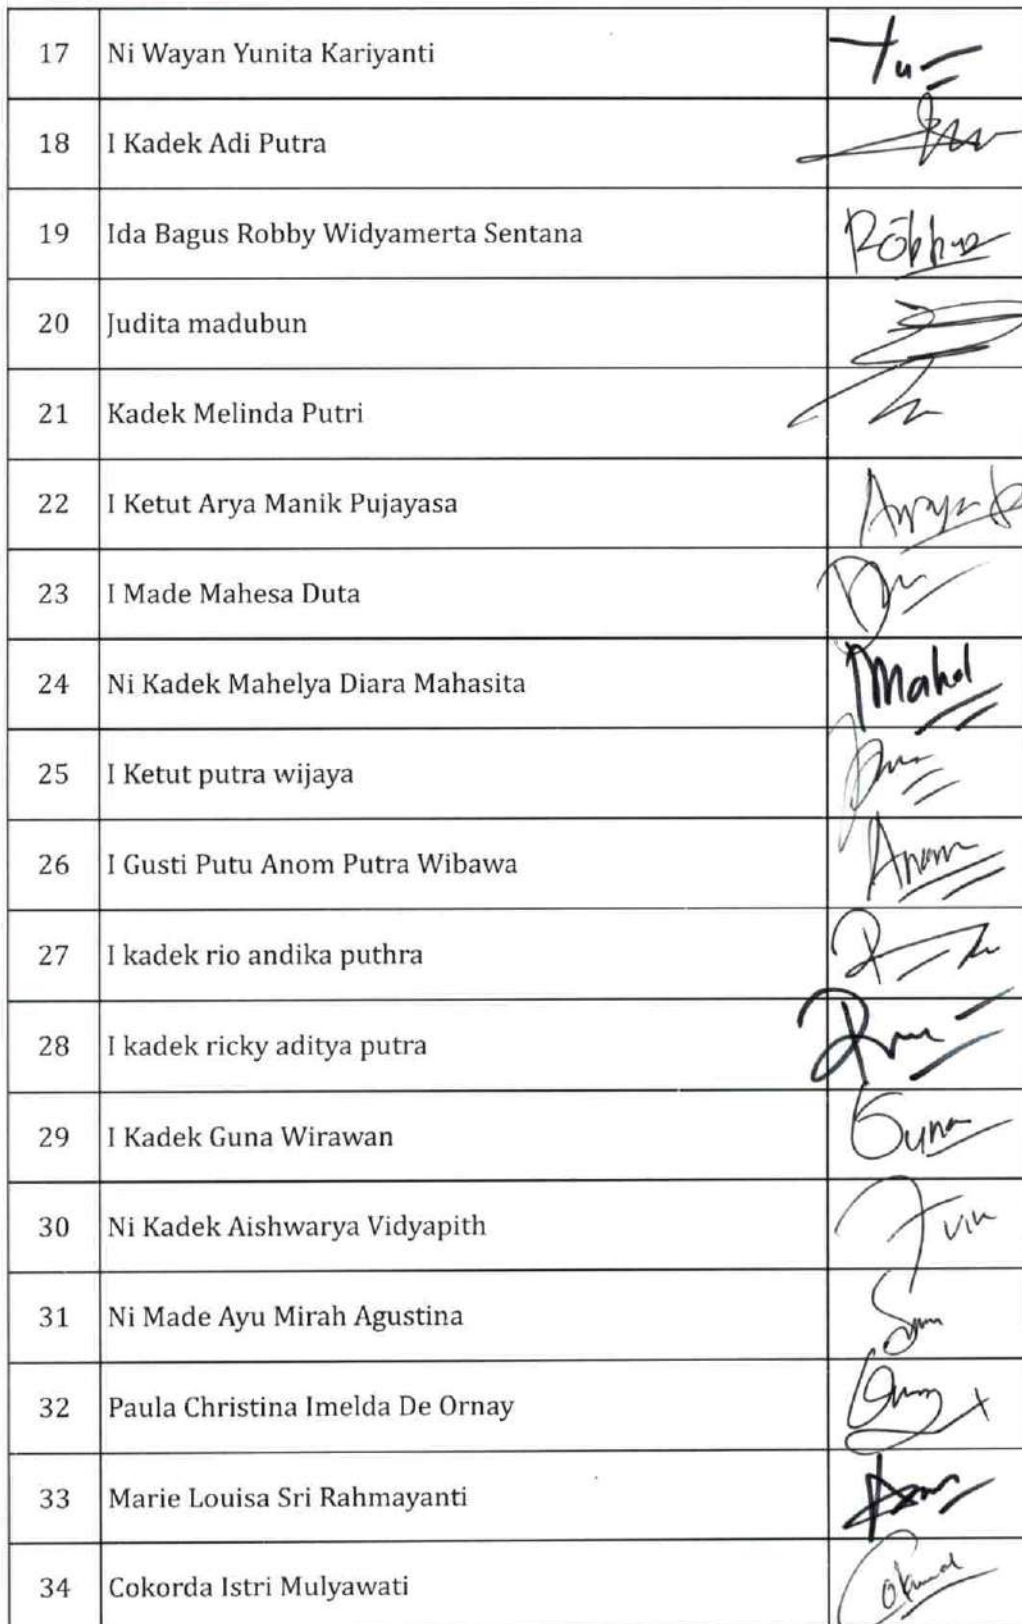 17 Ni Wayan Yunita Kariyanti Yu
18 I Kadek Adi Putra
19 Ida Bagus Robby Widyamerta Sentana
20 Judita madubun
21 Kadek Melinda Putri
22 I Ketut Arya Manik Pujayasa
23 I Made Mahesa Duta
24 Ni Kadek Mahelya Diara Mahasita Mahel
25 I Ketut putra wijaya
26 I Gusti Putu Anom Putra Wibawa Anom
27 I kadek rio andika puthra
28 I kadek ricky aditya putra
29 I Kadek Guna Wirawan Guna
30 Ni Kadek Aishwarya Vidyapith
31 Ni Made Ayu Mirah Agustina
32 Paula Christina Imelda De Ornay
33 Marie Louisa Sri Rahmayanti
34 Cokorda Istri Mulyawati